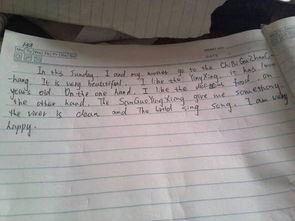 In this Sunday, I and my mother go to the ChiBiGuZhanChang
-hang. It is very beautiful. I like the YingXing, it has 1000
year's old. On the one hand, I like the food, on
the other hand, The SanGuoYingXiong give me something
the river is clean and The bird sing song. I am very
happy.